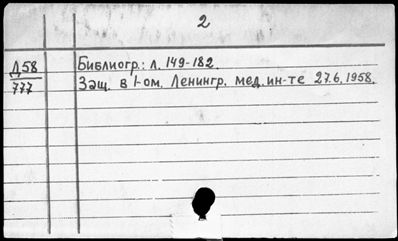 2
Д58
777
Библиогр.: л. 149-182.
Защ. в I-ом. Ленингр. мед. ин-те 27.6.1958.